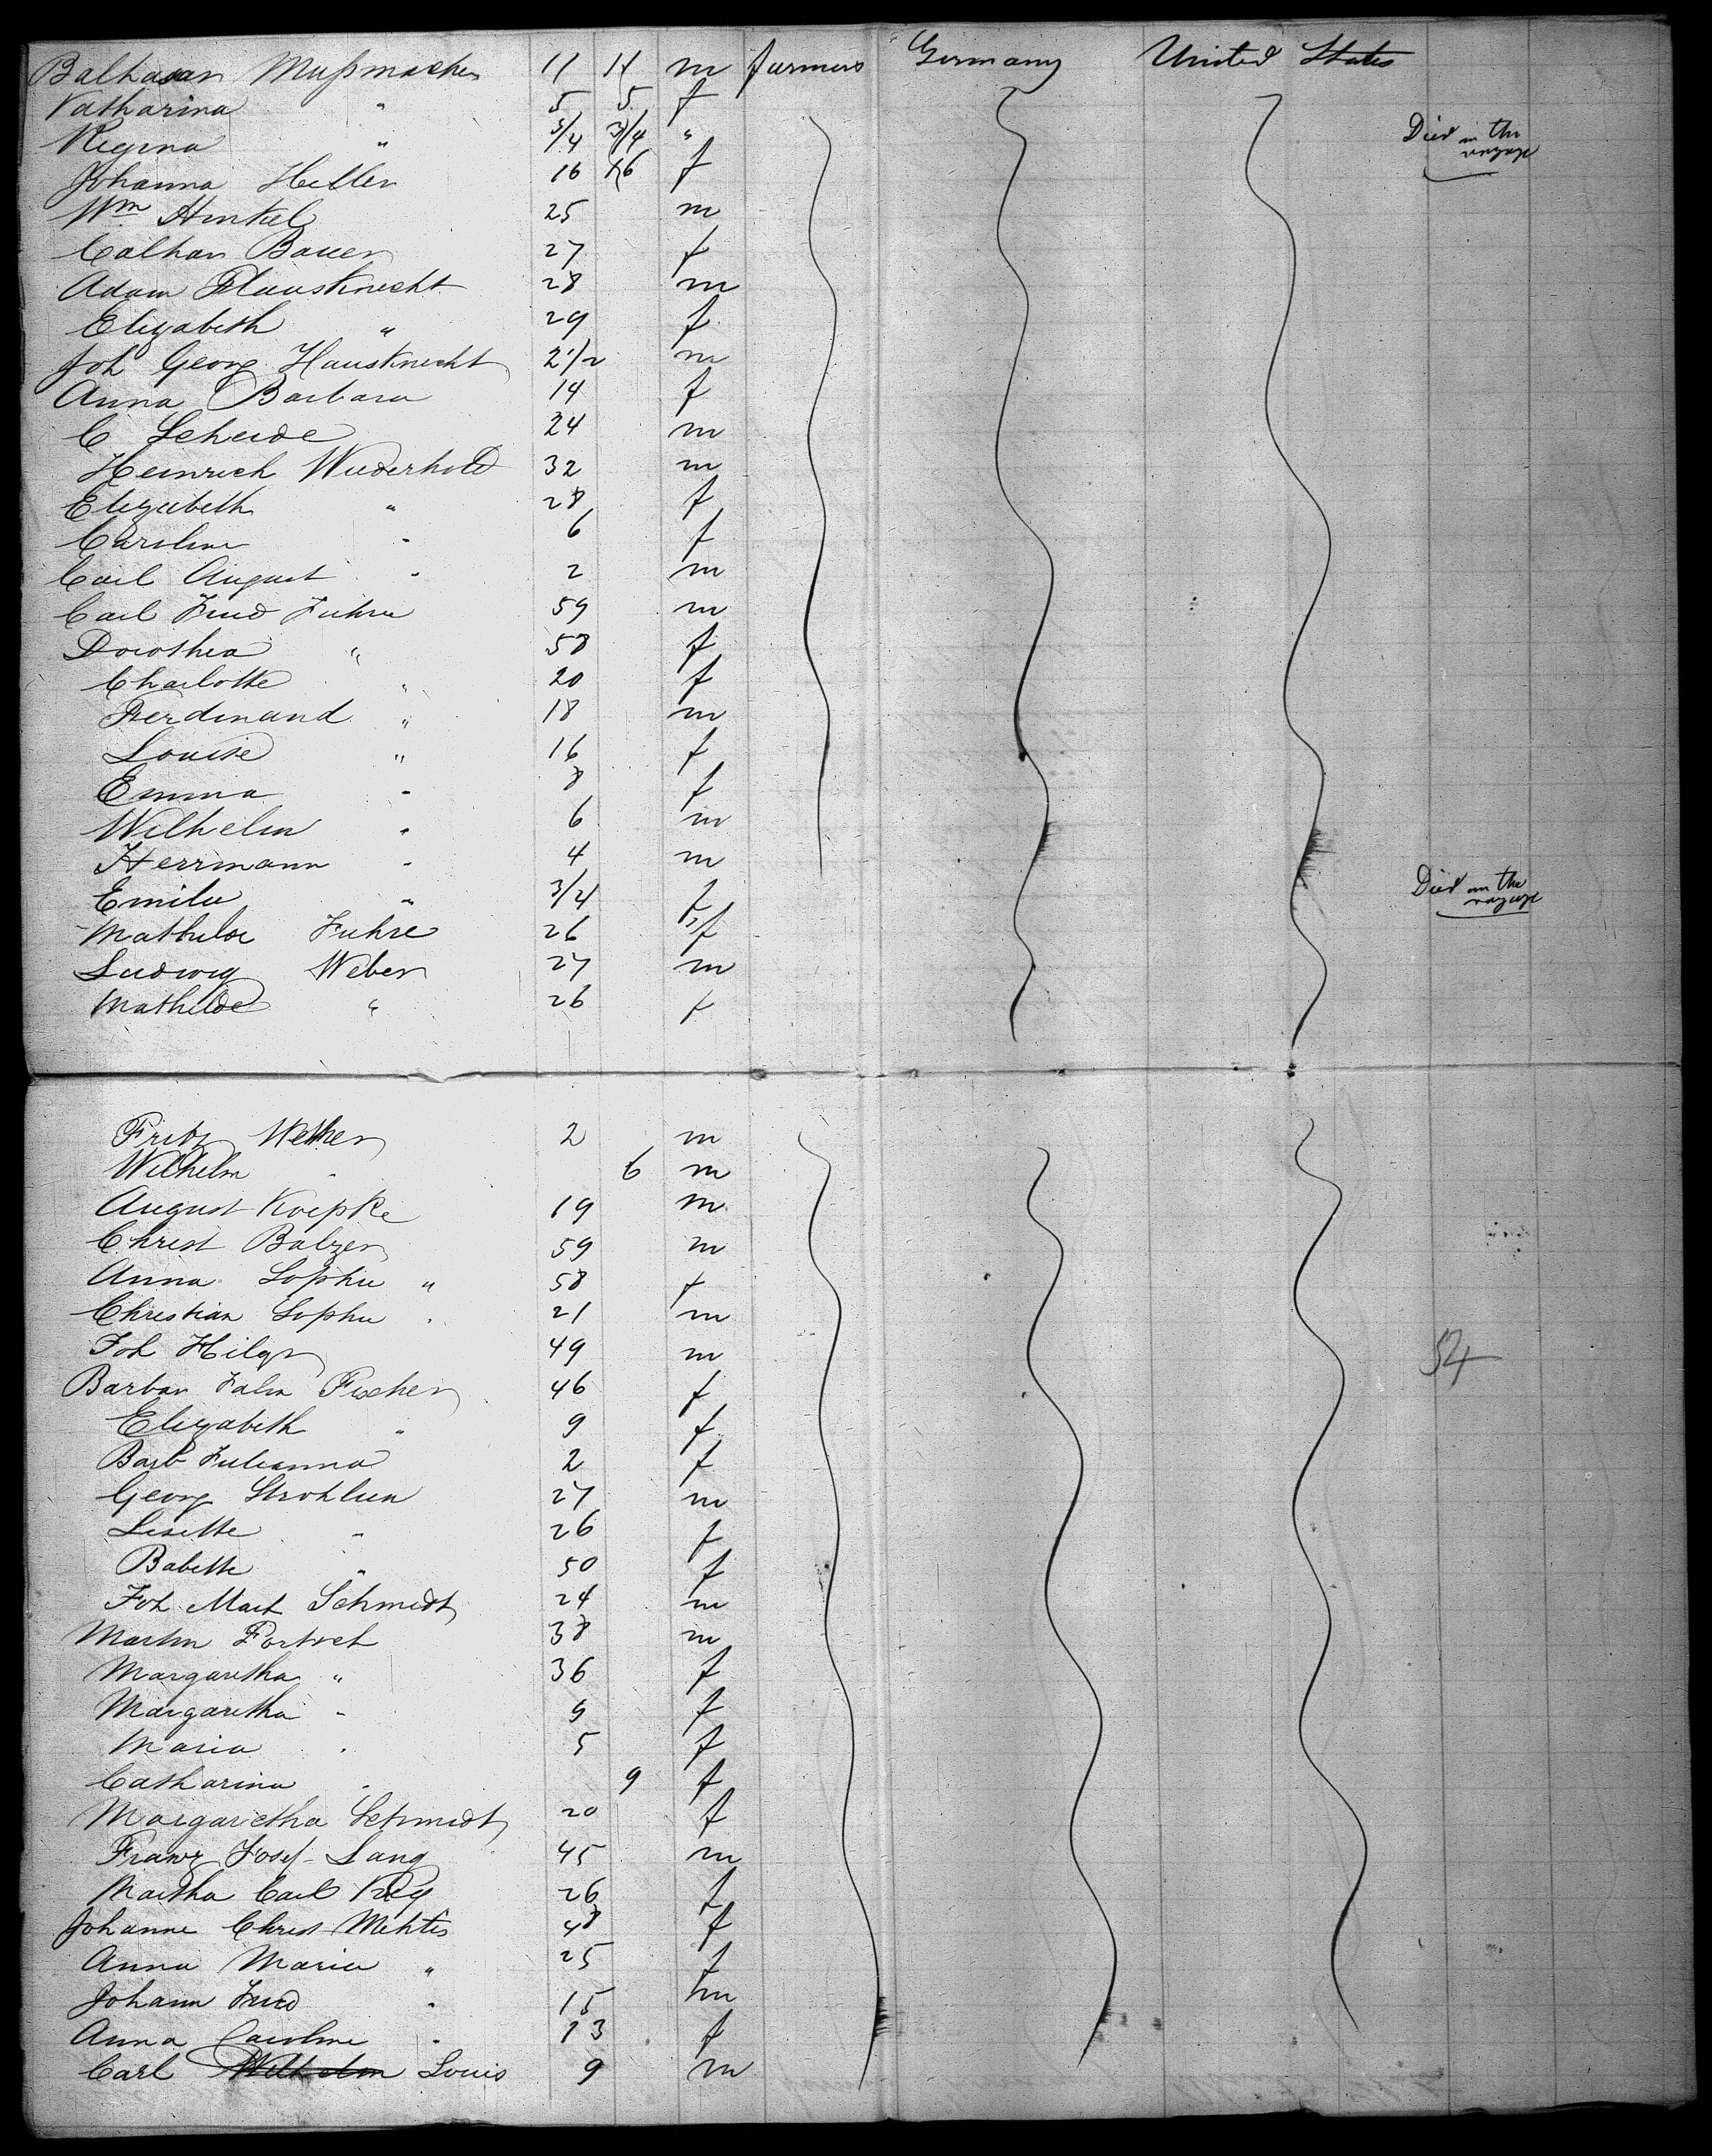 Balthasar Mußmacher 11 11 m farmers Germany United States
Katharina " 5 5 f
Regina " 3/4 3/4 " Died on the voyage
Johanna Hetler 16 16 f
Wm Hinkel 25 m
Cathar Bauer 27 f
Adam Hausknecht 28 m
Elizabeth " 29 f
Joh Georg Hausknecht 2 1/2 m
Anna Barbara 14 f
C Scheide 24 m
Heinrich Wiederhold 32 m
Elizabeth " 28 f
Caroline " 6 f
Carl August " 2 m
Carl Fried Fuhre 59 m
Dorothea " 58 f
Charlotte " 20 f
Ferdinand " 18 m
Louise " 16 f
Emma " 8 f
Wilhelm " 6 m
Herrmann " 4 m
Emilie " 3/4 f Died on the voyage
Mathilde Fuhre 26 f
Ludwig Weber 27 m
Mathilde " 26 f
Fritz Weber 2 m
Wilhelm " 6 m
August Koepke 19 m
Christ Balzer 59 m
Anna Sophie " 58 f
Christian Sophie " 21 m
Joh Hilger 49 m
Barbar Fischer 46 f
Elizabeth " 9 f
Barb Julianna 2 f
Georg Strohlein 27 m
Lisette " 26 f
Babette " 50 f
Joh Mart Schmidt 24 m
Martin Fortsch 38 m
Margaretha " 36 f
Margaretha " 9 f
Maria " 5 f
Catharina " 9 f
Margaretha Schmidt 20 f
Franz Josef Lang 45 m
Martha Carl 26 f
Johanne Christ Mehtis 48 f
Anna Maria " 25 f
Johann Fried " 15 m
Anna Caroline " 13 f
Carl Wilhelm Louis 9 m
54